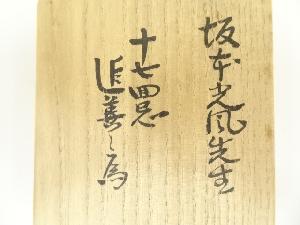 坂本光風先生
十七回忌
追善之為